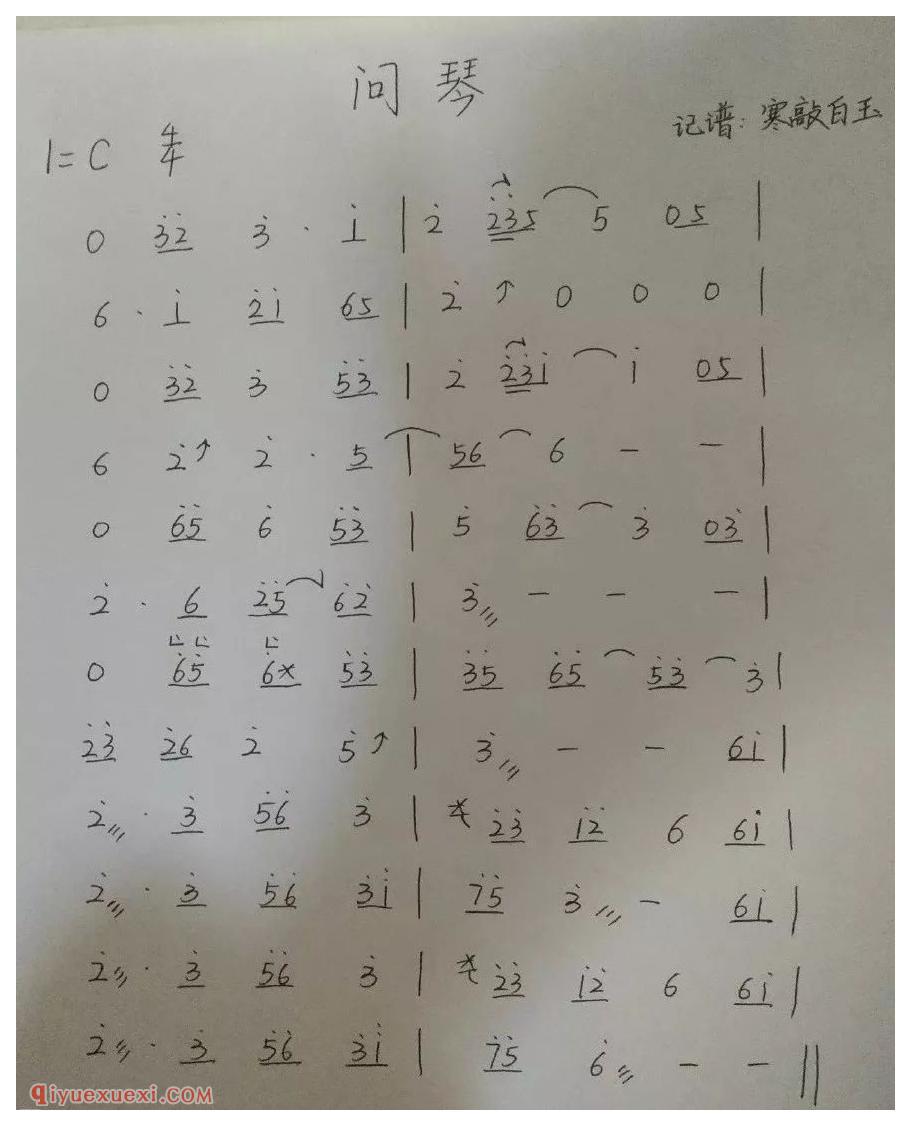 问琴
记谱：寒敲白玉
1=C 4/4
0 3̇2̇ 3̇ · 1̇ | 2̇ 2̇3̇5 5 05 |
6 · 1̇ 2̇1̇ 65 | 2̇ ↑ 0 0 0 |
0 3̇2̇ 3̇ 5̇3̇ | 2̇ 2̇3̇1̇ 1̇ 05 |
6 2̇↑ 2̇ · 5 | 56 6 - - |
0 6̇5̇ 6̇ 5̇3̇ | 5̇ 6̇3̇ 3̇ 03̇ |
2̇ · 6 2̇5̇ 6̇2̇ | 3̇/// - - - |
0 6̇5̇ 6̇* 5̇3̇ | 3̇5̇ 6̇5̇ 5̇3̇ 3̇ |
2̇3̇ 2̇6 2̇ 5̇↑ | 3̇/// - - 61̇ |
2̇/// · 3̇ 5̇6̇ 3̇ | 2̇3̇ 1̇2̇ 6 61̇ |
2̇/// · 3̇ 5̇6̇ 3̇1̇ | 7̇5̇ 3̇/// - 61̇ |
2̇/// · 3̇ 5̇6̇ 3̇ | 2̇3̇ 1̇2̇ 6 61̇ |
2̇/// · 3̇ 5̇6̇ 3̇1̇ | 7̇5̇ 6̇/// - - ||
qiyuexuexi.COM